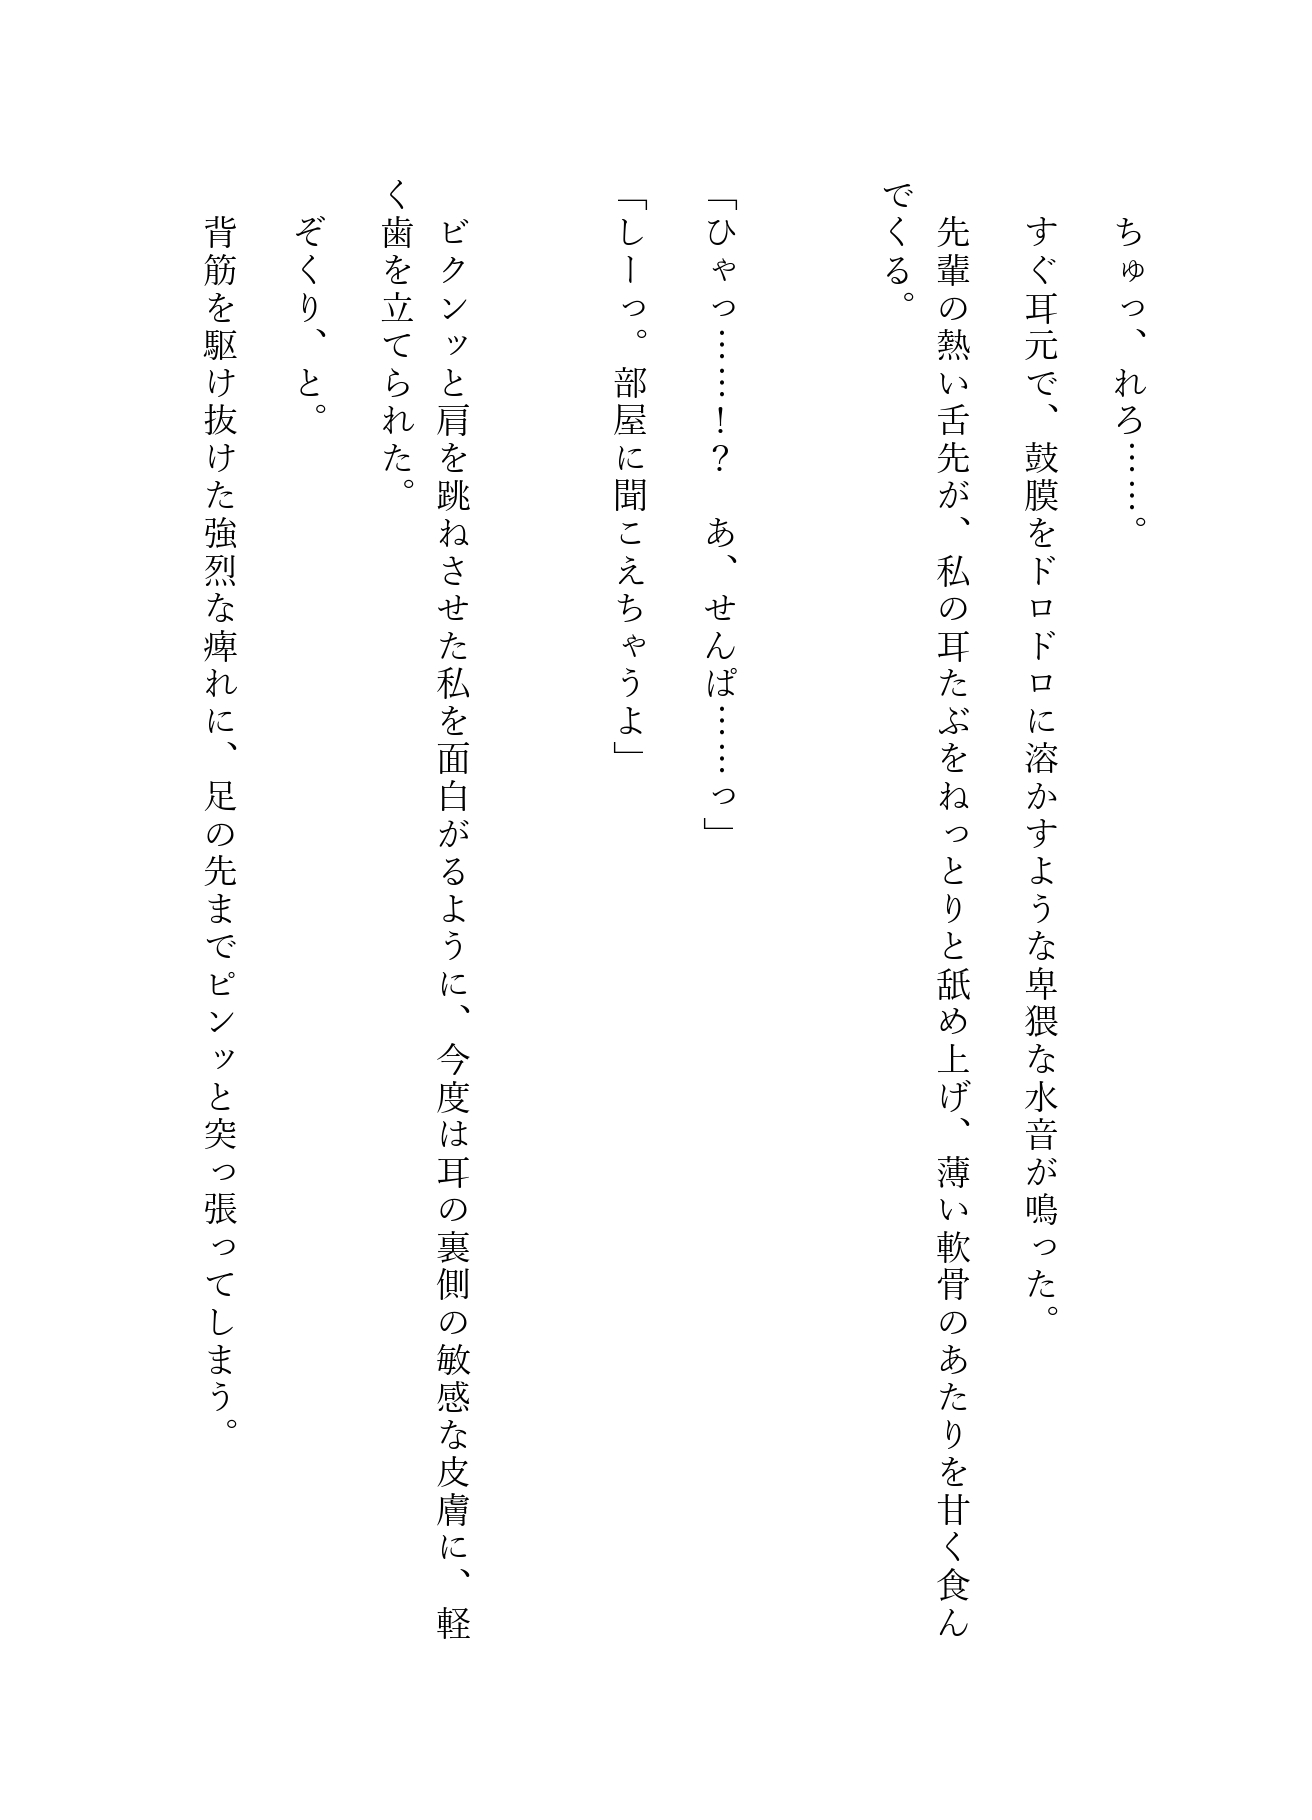 ちゅっ、れろ……。
すぐ耳元で、鼓膜をドロドロに溶かすような卑猥な水音が鳴った。
先輩の熱い舌先が、私の耳たぶをねっとりと舐め上げ、薄い軟骨のあたりを甘く食ん
でくる。
「ひゃっ……！？　あ、せんぱ……っ」
「しーっ。部屋に聞こえちゃうよ」
ビクンッと肩を跳ねさせた私を面白がるように、今度は耳の裏側の敏感な皮膚に、軽
く歯を立てられた。
ぞくり、と。
背筋を駆け抜けた強烈な痺れに、足の先までピンッと突っ張ってしまう。